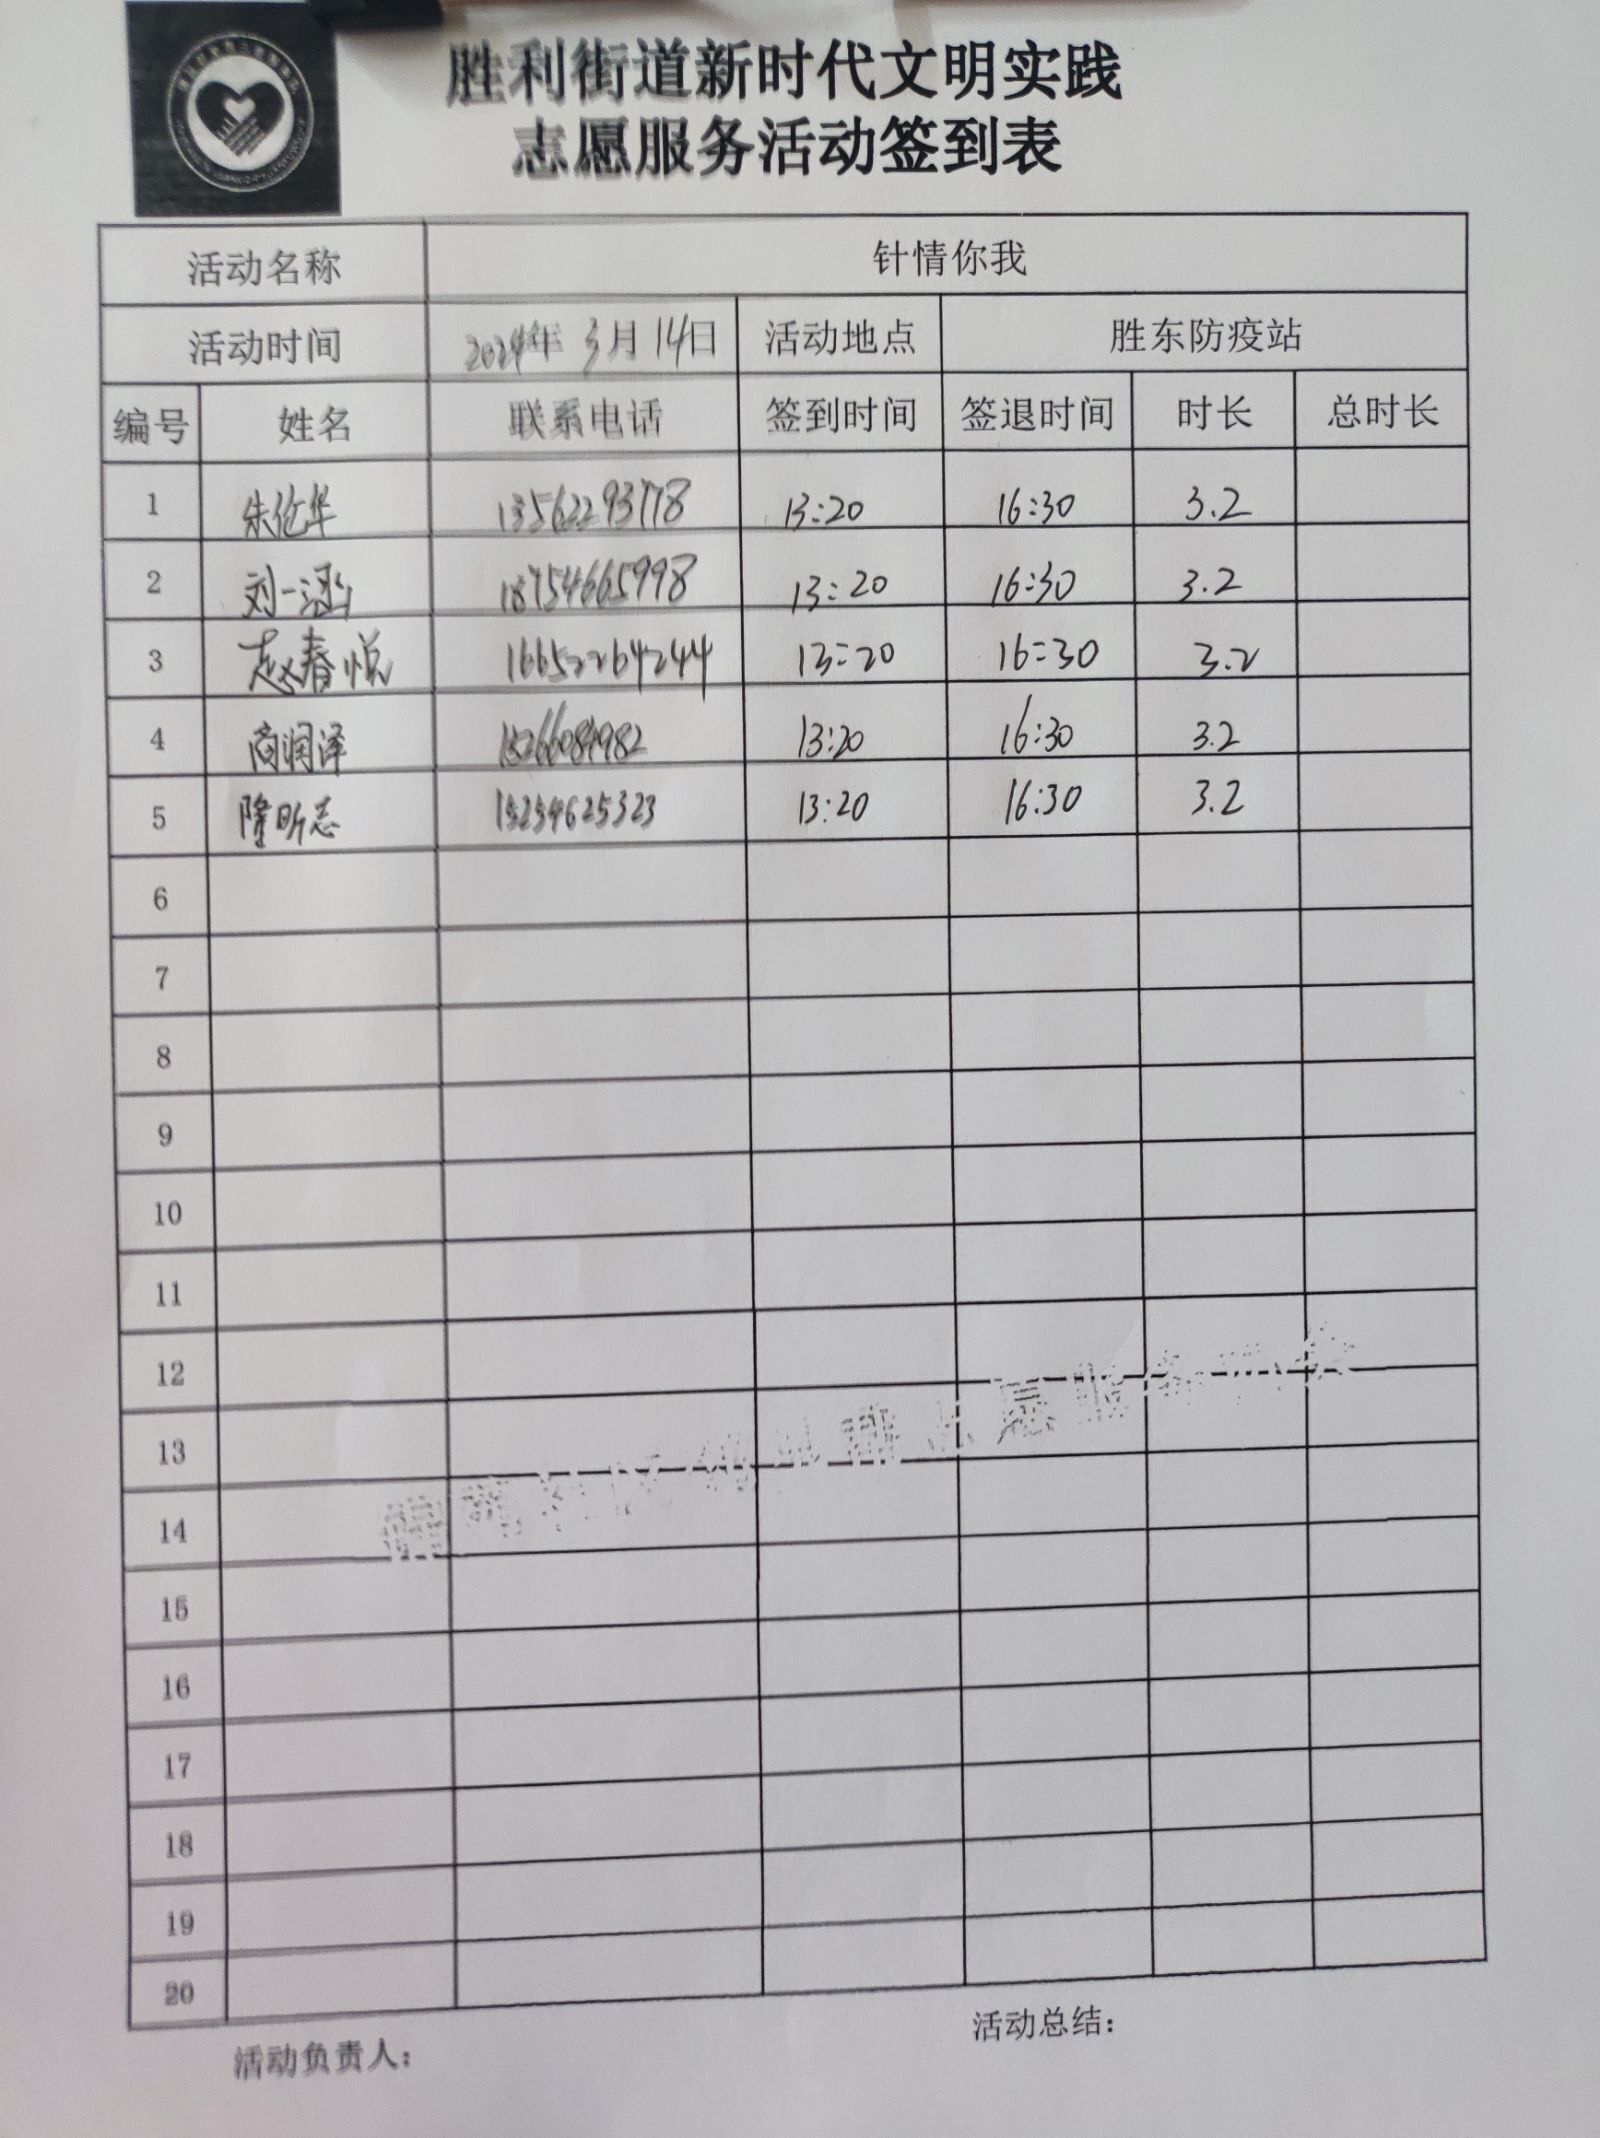 胜利街道新时代文明实践
志愿服务活动签到表
活动名称 针情你我
活动时间 2024年 3月 14日 活动地点 胜东防疫站
编号 姓名 联系电话 签到时间 签退时间 时长 总时长
1 朱伦华 13562293778 13:20 16:30 3.2
2 刘一涵 18754665998 13:20 16:30 3.2
3 赵春悦 16652264244 13:20 16:30 3.2
4 商润泽 13:20 16:30 3.2
5 隆昕志 15254625323 13:20 16:30 3.2
6
7
8
9
10
11
12
13
14
15
16
17
18
19
20
活动负责人: 活动总结: